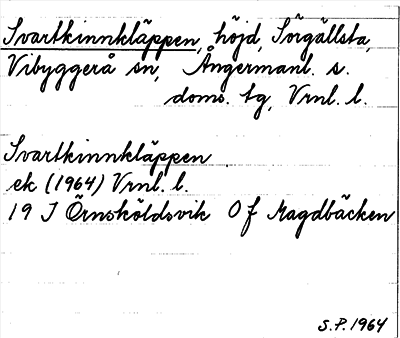 Svartkinnkläppen, höjd, Sörgällsta,
Vibyggerå sn, Ångermanl. s.
doms. tg, Vrnl. l.
Svartkinnkläppen
ek (1964) Vrnl. l.
19 J Örnsköldsvik 0 f Magdbäcken
S.P. 1964